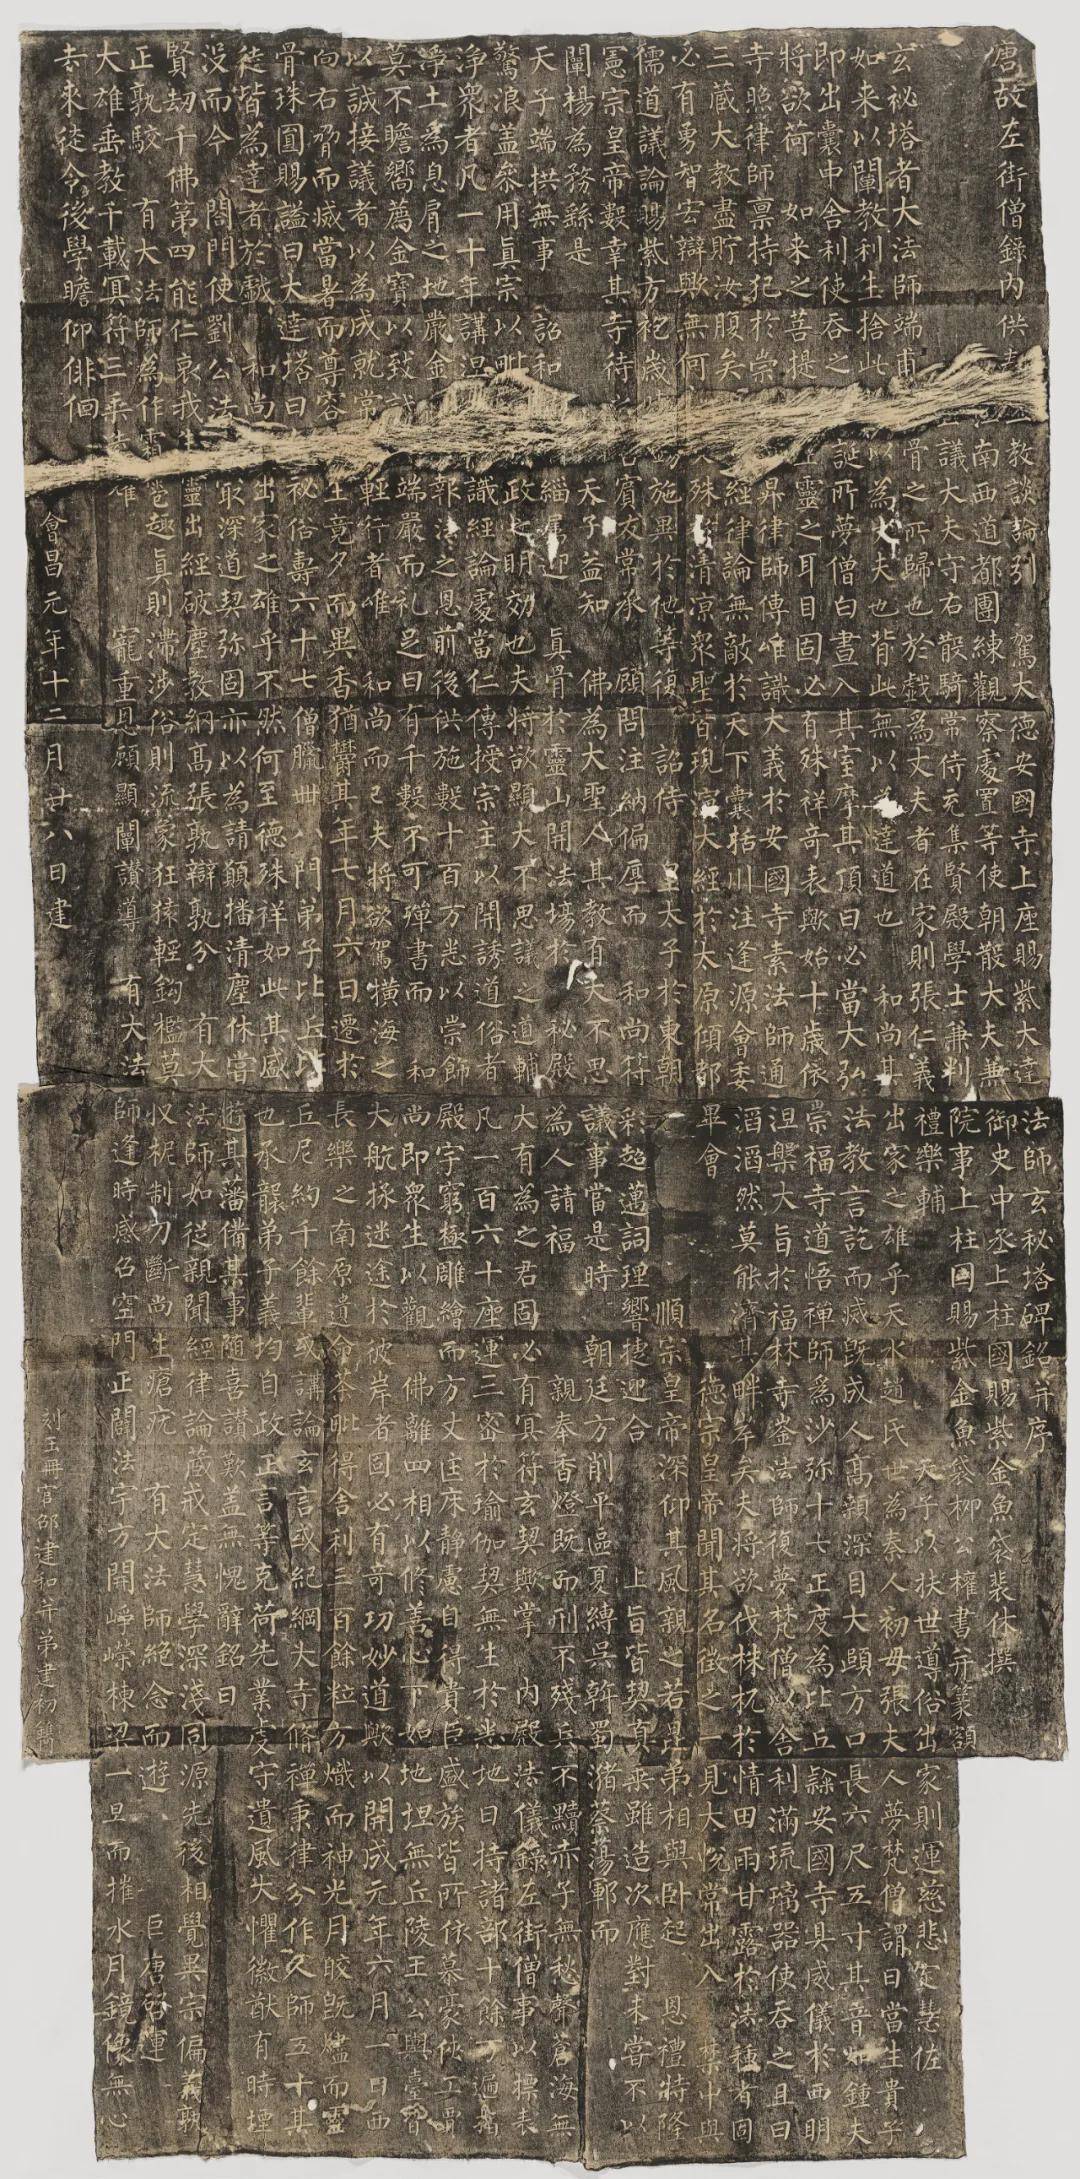 唐故左街僧錄內供 教談論引 駕大德安國寺上座賜紫大達法師玄秘塔碑銘并序
江南西道都團練觀察處置等使朝散大夫兼御史中丞上柱國賜紫金魚袋裴休撰
議大夫守右散騎常侍充集賢殿學士兼判院事上柱國賜紫金魚袋柳公權書并篆額
玄祕塔者大法師端甫 骨之所歸也於戲為丈夫者在家則張仁義禮樂輔 天子以扶世導俗出家則運慈悲定慧佐
如來以闡教利生捨此 以為丈夫也背此無以為達道也 和尚其出家之雄乎天水趙氏世為秦人初母張夫人夢梵僧謂曰當生貴子
即出囊中舍利使吞之 誕所夢僧白晝入其室摩其頂曰必當大弘法教言訖而滅既成人高顙深目大頤方口長六尺五寸其音如鐘夫
將欲荷 如來之菩提 靈之耳目固必有殊祥奇表歟始十歲依崇福寺道悟禪師為沙弥十七正度為比丘隸安國寺具威儀於西明
寺照律師稟持犯於崇 昇律師傳唯識大義於安國寺素法師通涅槃大旨於福林寺崟法師復夢梵僧以舍利滿琉璃器使吞之且曰
三藏大教盡貯汝腹矣 經律論無敵於天下囊括川注逢源會委滔滔然莫能濟其畔岸矣夫將欲伐株杌於情田雨甘露於法種者固
必有勇智宏辯歟無何 殊於清涼眾聖皆現演大經於太原傾都畢會 德宗皇帝聞其名徵之一見大悅常出入 禁中與
儒道議論賜紫方袍歲 施異於他等復 詔侍 皇太子於東朝 順宗皇帝深仰其風親之若昆弟相與臥起 恩禮特隆
憲宗皇帝數幸其寺待 賓友常承 顧問注納偏厚而 和尚符彩超邁詞理響捷迎合 上旨皆契真乘雖造次應對未嘗不以
闡揚為務繇是 天子益知 佛為大聖人其教有大不思議事當是時 朝廷方削平區夏縛吳斡蜀瀦蔡蕩鄆而
天子端拱無事 詔和 緇屬迎 真骨於靈山開法場於 秘殿為人請福 親奉香燈既而刑不殘兵不黷赤子無愁聲蒼海無
驚浪蓋參用真宗以毗 政之明效也夫將欲顯大不思議之道輔大有為之君固必有冥符玄契歟掌 內殿法儀錄左街僧事以標表
淨眾者凡一十年講涅 識經論處當仁傳授宗主以開誘道俗者凡一百六十座運三密於瑜伽契無生於悉地日持諸部十餘万遍指
淨土為息肩之地嚴金 報法之恩前後供施數十百万悉以崇飾殿宇窮極雕繪而方丈匡床静慮自得貴臣盛族皆所依慕豪俠工賈
莫不瞻嚮薦金寶以致誠 端嚴而礼足日有千數不可殫書而 和尚即眾生以觀佛離四相以修善心下如地坦無丘陵王公輿臺皆
以誠接議者以為成就常 輕行者唯 和尚而已夫將欲駕橫海之大航拯迷途於彼岸者固必有奇功妙道歟以開成元年六月一日西
向右脅而滅當暑而尊容 生竟夕而異香猶鬱其年七月六日遷於長樂之南原遺命荼毗得舍利三百餘粒方熾而神光月皎既燼而靈
骨珠圓賜謚曰大達塔曰 秘俗壽六十七僧臘卌八門弟子比丘比丘尼約千餘輩或講論玄言或紀綱大寺脩禪秉律分作人師五十其
徒皆為達者於戲 和尚 出家之雄乎不然何至德殊祥如此其盛也承襲弟子義均自政正言等克荷先業虔守遺風大懼徽猷有時堙
没而今 閤門使劉公法 最深道契弥固亦以為請願播清塵休嘗遊其藩備其事隨喜讚歎蓋無愧辭銘曰
賢劫千佛第四能仁哀我生靈出經破塵教綱高張孰辯孰分 有大法師如從親聞經律論藏戒定慧學深淺同源先後相覺異宗偏義孰
正孰駮 有大法師為作霜雹趣真則滯涉俗則流象狂猿輕鈎檻莫收柅制刀斷尚生瘡疣 有大法師絕念而遊 巨唐啓運
大雄垂教千載冥符三乘 寵重恩顧顯闡讚導 有大法師逢時感召空門正闢法宇方開崢嶸棟梁一旦而摧水月鏡像無心
去來徒令後學瞻仰徘徊
會昌元年十二月廿八日建
刻玉冊官邵建和并弟建初鐫